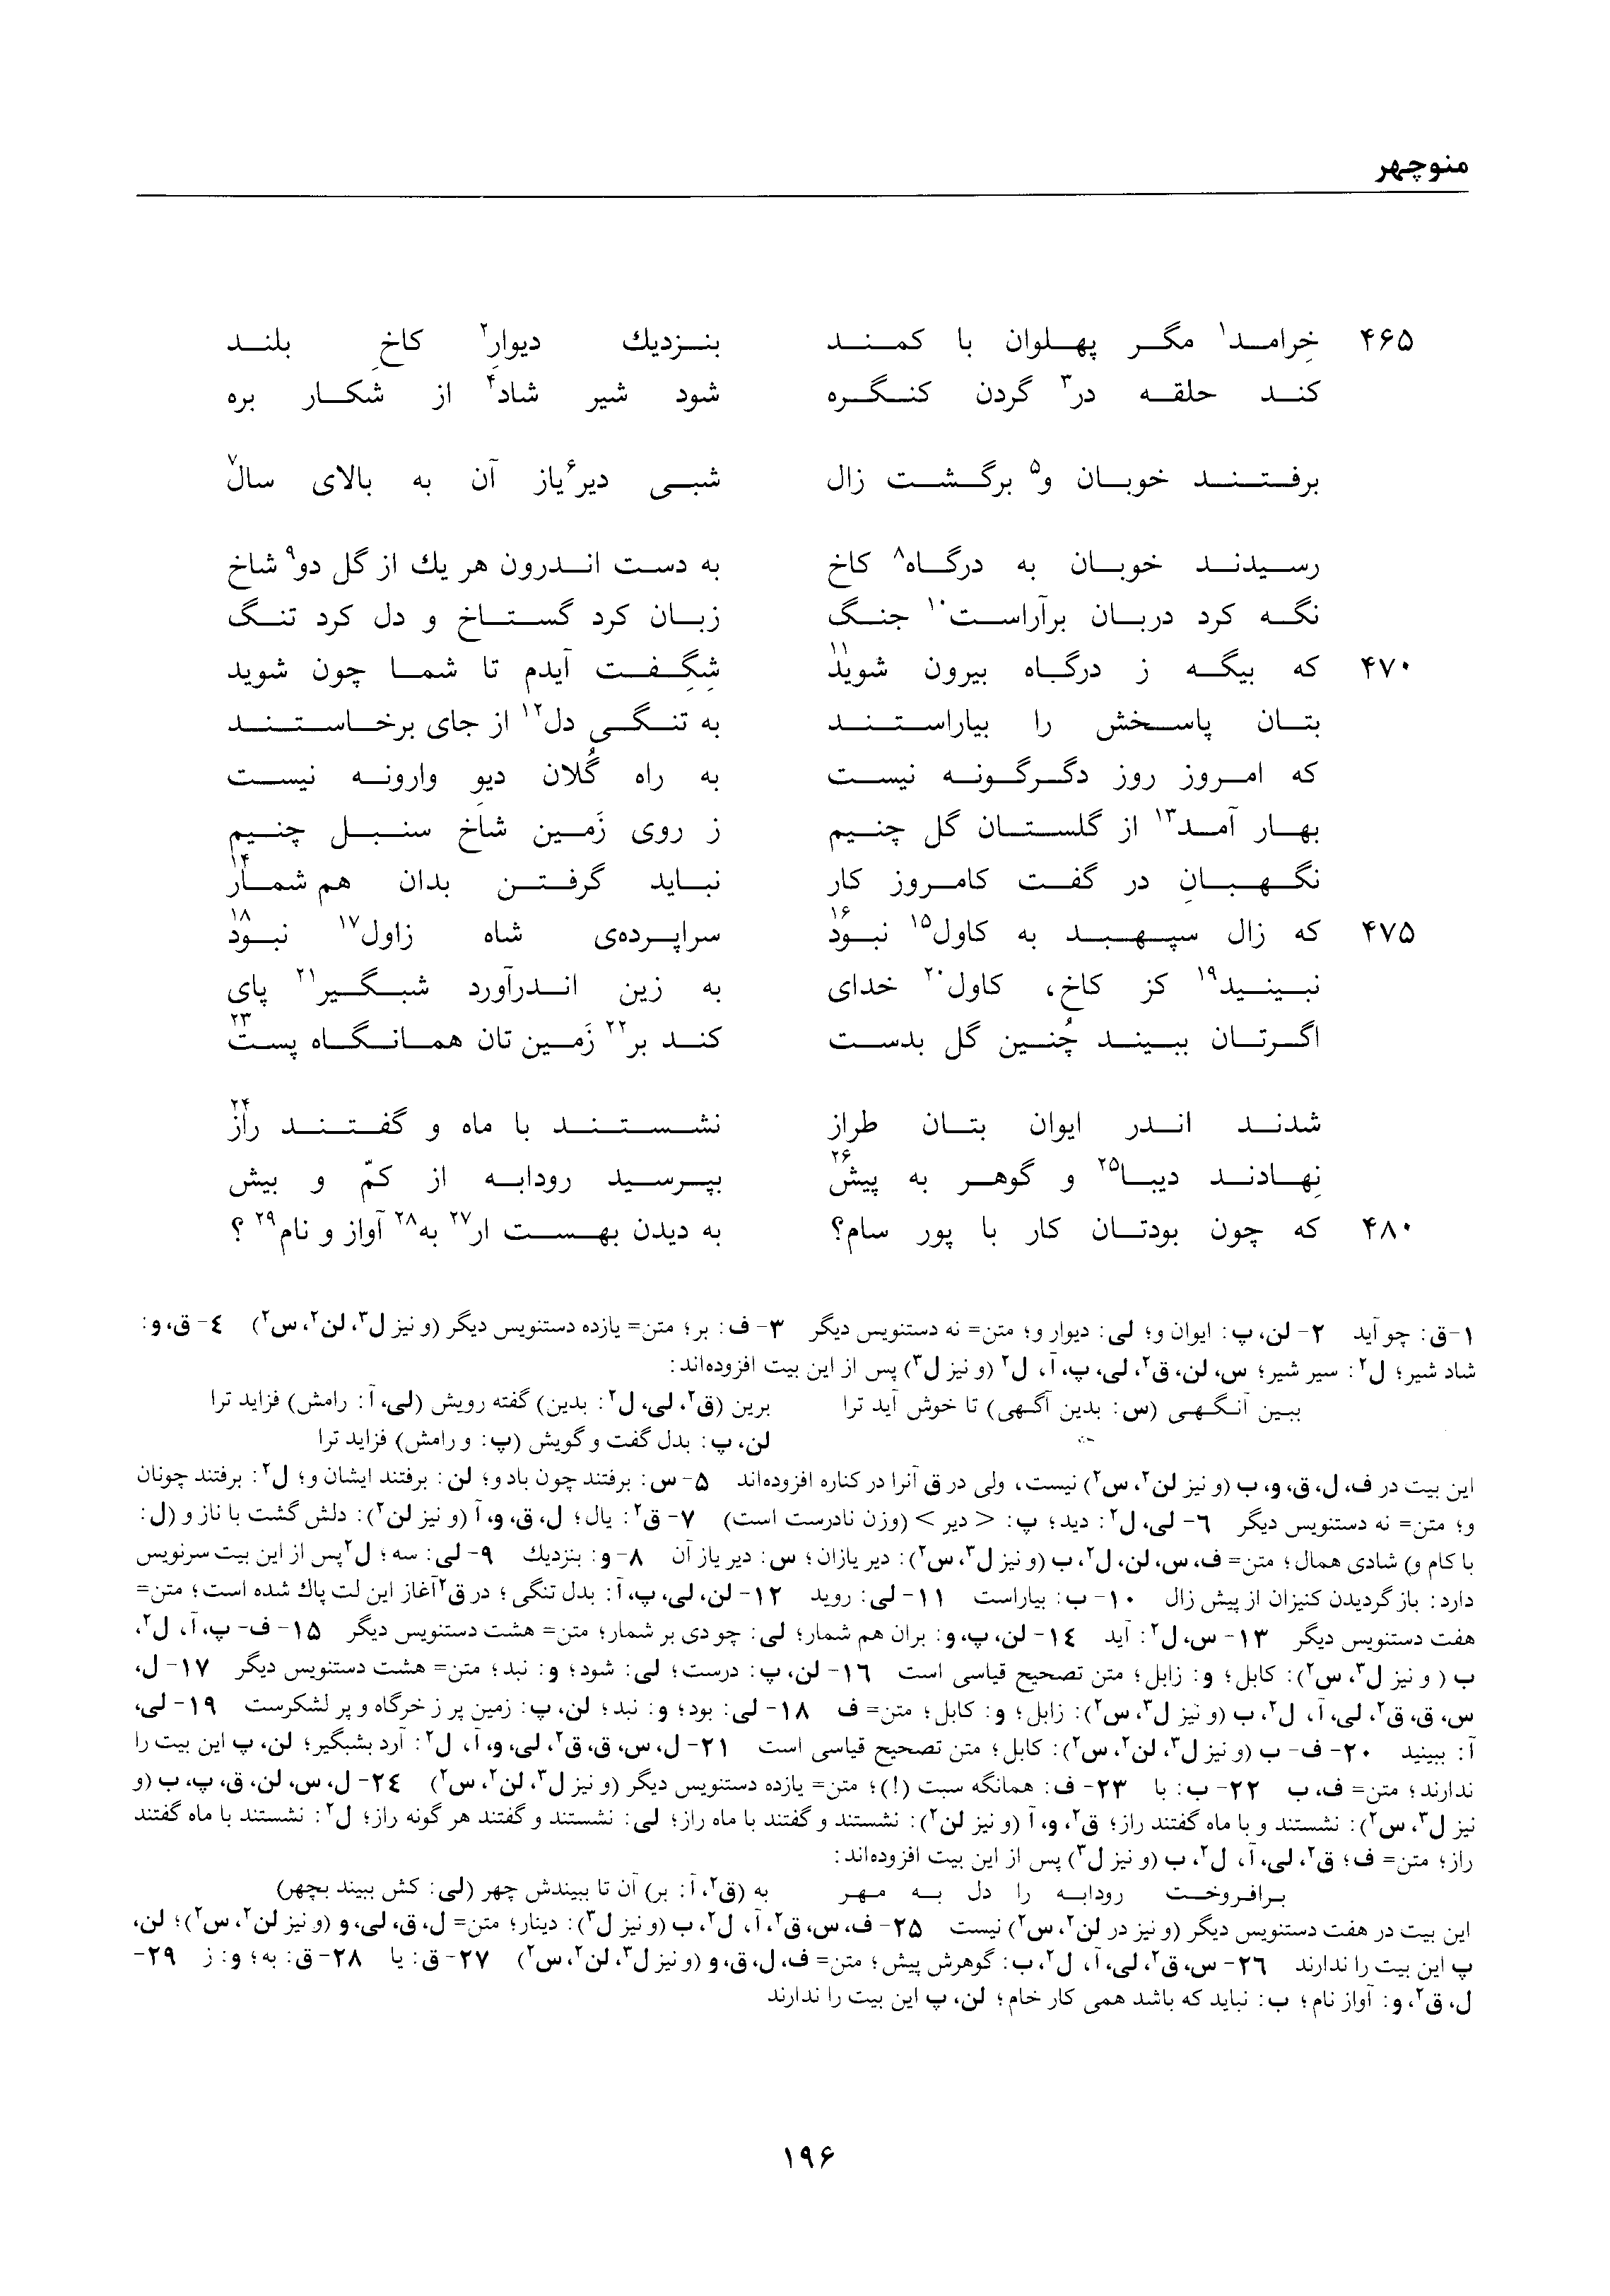 منوچهر
۴۶۵ خرامد۱ مگر پهلوان با کمند بنزدیك دیوارِ۲ کاخِ بلند
کند حلقه در۳ گردن کنگره شود شیر شاد۴ از شکار بره
برفتند خوبان و۵ برگشت زال شبی دیر۶یاز آن به بالای سال۷
رسیدند خوبان به درگاه۸ کاخ به دست اندرون هر یك از گل دو۹ شاخ
نگه کرد دربان برآراست۱۰ جنگ زبان کرد گستاخ و دل کرد تنگ
۴۷۰ که بیگه ز درگاه بیرون شوید۱۱ شِگِفت آیدم تا شما چون شوید
بتان پاسخش را بیاراستند به تنگی دل۱۲ از جای برخاستند
که امروز روز دگرگونه نیست به راه گُلان دیوِ وارونه نیست
بهار آمد۱۳ از گلستان گل چنیم ز روی زَمین شاخ سنبل چنیم
نگهبانِ در گفت کامروز کار نباید گرفتن بدان هم شمار۱۴
۴۷۵ که زال سپهبد به کاول۱۵ نبود۱۶ سراپرده‌ی شاه زاول۱۷ نبود۱۸
نبینید۱۹ کز کاخ، کاول۲۰ خدای به زین اندرآورد شبگیر۲۱ پای
اگرتان ببیند چُنین گل بدست کند بر۲۲ زَمین تان همانگاه پست۲۳
شدند اندر ایوان بتان طراز نشستند با ماه و گفتند راز۲۴
نِهادند دیبا۲۵ و گوهر به پیش۲۶ بپرسید رودابه از کمّ و بیش
۴۸۰ که چون بودتان کار با پور سام؟ به دیدن بهست ار۲۷ به۲۸ آواز و نام۲۹ ؟
۱-ق: چو آید ۲- لن، پ: ایوان و؛ لی: دیوار و؛ متن= نه دستنویس دیگر ۳- ف: بر؛ متن= یازده دستنویس دیگر (و نیز ل۳، لن۲، س۲) ۴- ق، و:
شاد شیر؛ ل۲: سیر شیر؛ س، لن، ق۲، لی، پ، آ، ل۲ (و نیز ل۳) پس از این بیت افزوده‌اند:
ببین آنگهی (س: بدین آگهی) تا خوش آید ترا برین (ق۲، لی، ل۲: بدین) گفته رویش (لی، آ: رامش) فزاید ترا
لن، پ: بدل گفت و گویش (پ: و رامش) فزاید ترا
این بیت در ف، ل، ق، و، ب (و نیز لن۲، س۲) نیست، ولی در ق آنرا در کناره افزوده‌اند ۵- س: برفتند چون باد و؛ لن: برفتند ایشان و؛ ل۲: برفتند چونان
و؛ متن= نه دستنویس دیگر ۶- لی، ل۲: دید؛ پ: < دیر > (وزن نادرست است) ۷- ق۲: یال؛ ل، ق، و، آ (و نیز لن۲): دلش گشت با ناز و (ل:
با کام و) شادی همال؛ متن= ف، س، لن، ل۲، ب (و نیز ل۳، س۲): دیر یازان؛ س: دیر یاز آن ۸- و: بنزدیك ۹- لی: سه؛ ل۲پس از این بیت سرنویس
دارد: باز گردیدن کنیزان از پیش زال ۱۰- ب: بیاراست ۱۱- لی: روید ۱۲- لن، لی، پ، آ: بدل تنگی؛ در ق۲آغاز این لت پاك شده است؛ متن=
هفت دستنویس دیگر ۱۳- س، ل۲: آید ۱۴- لن، پ، و: بران هم شمار؛ لی: چو دی بر شمار؛ متن= هشت دستنویس دیگر ۱۵- ف- پ، آ، ل۲،
ب ( و نیز ل۳، س۲): کابل؛ و: زابل؛ متن تصحیح قیاسی است ۱۶- لن، پ: درست؛ لی: شود؛ و: نبد؛ متن= هشت دستنویس دیگر ۱۷- ل،
س، ق، ق۲، لی، آ، ل۲، ب (و نیز ل۳، س۲): زابل؛ و: کابل؛ متن= ف ۱۸- لی: بود؛ و: نبد؛ لن، پ: زمین پر ز خرگاه و پر لشکرست ۱۹- لی،
آ: ببینید ۲۰- ف- ب (و نیز ل۳، لن۲، س۲): کابل؛ متن تصحیح قیاسی است ۲۱- ل، س، ق، ق۲، لی، و، آ، ل۲: آرد بشبگیر؛ لن، پ این بیت را
ندارند؛ متن= ف، ب ۲۲- ب: با ۲۳- ف: همانگه سبت (!)؛ متن= یازده دستنویس دیگر (و نیز ل۳، لن۲، س۲) ۲۴- ل، س، لن، ق، پ، ب (و
نیز ل۳، س۲): نشستند و با ماه گفتند راز؛ ق۲، و، آ (و نیز لن۲): نشستند و گفتند با ماه راز؛ لی: نشستند و گفتند هر گونه راز؛ ل۲: نشستند با ماه گفتند
راز؛ متن= ف؛ ق۲، لی، آ، ل۲، ب (و نیز ل۳) پس از این بیت افزوده‌اند:
برافروخت رودابه را دل به مهر به (ق۲، آ: بر) آن تا ببیندش چهر (لی: کش ببیند بچهر)
این بیت در هفت دستنویس دیگر (و نیز در لن۲، س۲) نیست ۲۵- ف، س، ق۲، آ، ل۲، ب (و نیز ل۳): دینار؛ متن= ل، ق، لی، و (و نیز لن۲، س۲)؛ لن،
پ این بیت را ندارند ۲۶- س، ق۲، لی، آ، ل۲، ب: گوهرش پیش؛ متن= ف، ل، ق، و (و نیز ل۳، لن۲، س۲) ۲۷- ق: یا ۲۸- ق: به؛ و: ز ۲۹-
ل، ق۲، و: آواز نام؛ ب: نباید که باشد همی کار خام؛ لن، پ این بیت را ندارند
۱۹۶